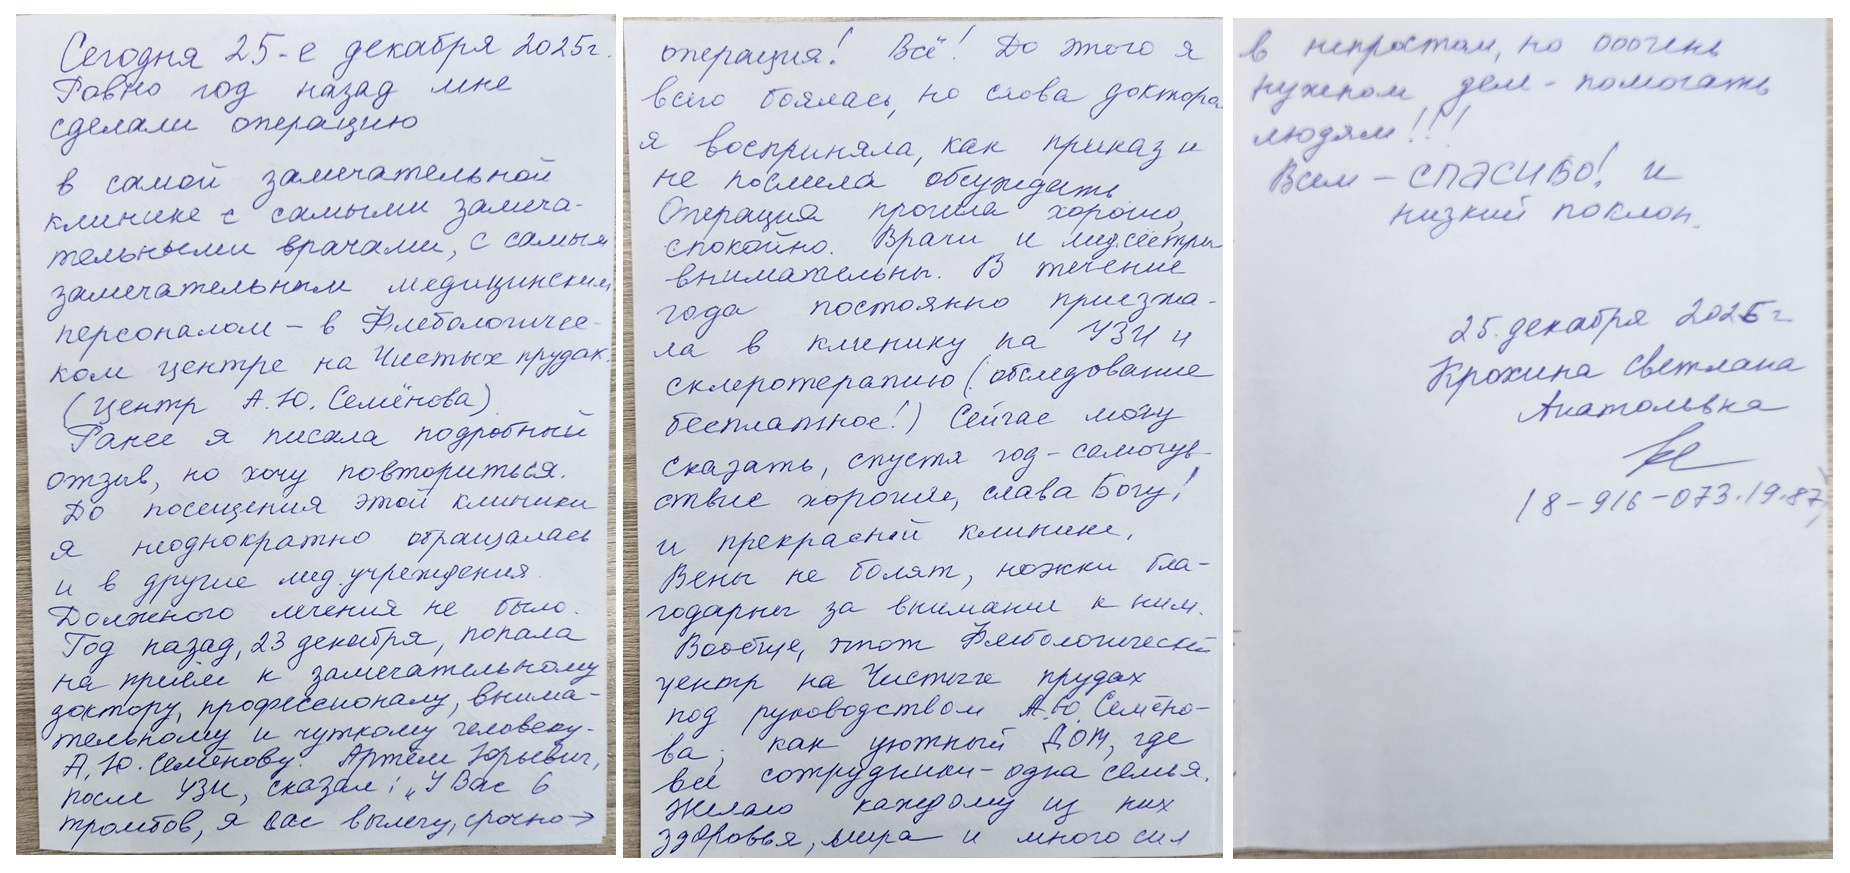 Сегодня 25-е декабря 2025г.
Ровно год назад мне
сделали операцию
в самой замечательной
клинике с самыми замеча-
тельными врачами, с самым
замечательным медицинским
персоналом – в Флебологичес-
ком центре на Чистых прудах.
(Центр А.Ю. Семёнова)
Ранее я писала подробный
отзыв, но хочу повториться.
До посещения этой клиники
я неоднократно обращалась
и в другие мед.учреждения.
Должного лечения не было.
Год назад, 23 декабря, попала
на приём к замечательному
доктору, профессионалу, внима-
тельному и чуткому человеку-
А.Ю. Семёнову. Артём Юрьевич,
после УЗИ, сказал: „У Вас 6
тромбов, я Вас вылечу, срочно→
операция! Всё! До этого я
всего боялась, но слова доктора
я восприняла, как приказ и
не посмела обсуждать
Операция прошла хорошо,
спокойно. Врачи и мед.сёстры
внимательны. В течение
года постоянно приезжа-
ла в клинику на УЗИ и
склеротерапию (обследование
бесплатное!) Сейчас могу
сказать, спустя год - самочув-
ствие хорошее, слава Богу!
и прекрасной клинике.
Вены не болят, ножки бла-
годарны за внимание к ним.
Вообще, этот Флебологический
центр на Чистых прудах
под руководством А.Ю. Семёно-
ва, как уютный ДОМ, где
все сотрудники - одна семья.
Желаю каждому из них
здоровья, мира и много сил
в непростом, но ооочень
нужном деле - помогать
людям!!!
Всем – СПАСИБО! и
низкий поклон.
25. декабря 2025г
Крохина Светлана
Анатольевна
(8-916-073.19.87)